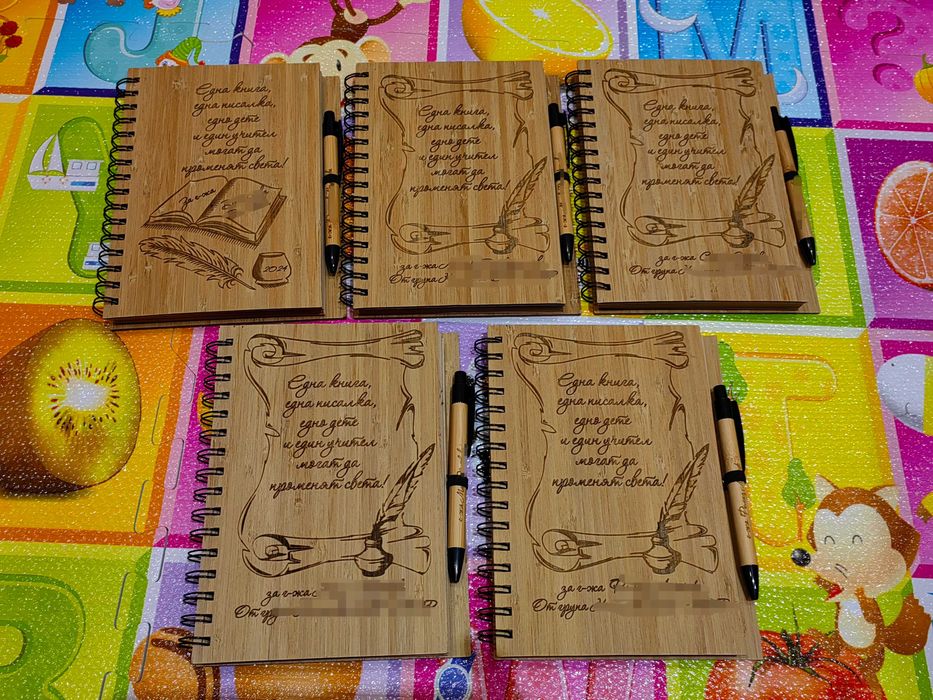 Една книга,
една писалка,
едно дете
и един учител
могат да
променят света!
За г-жа
2024
Една книга,
една писалка,
едно дете
и един учител
могат да
променят света!
за г-жа
От група
Една книга,
една писалка,
едно дете
и един учител
могат да
променят света!
за г-жа
От група
Една книга,
една писалка,
едно дете
и един учител
могат да
променят света!
за г-жа
От гру
Една книга,
една писалка,
едно дете
и един учител
могат да
променят света!
за г-жа
От група